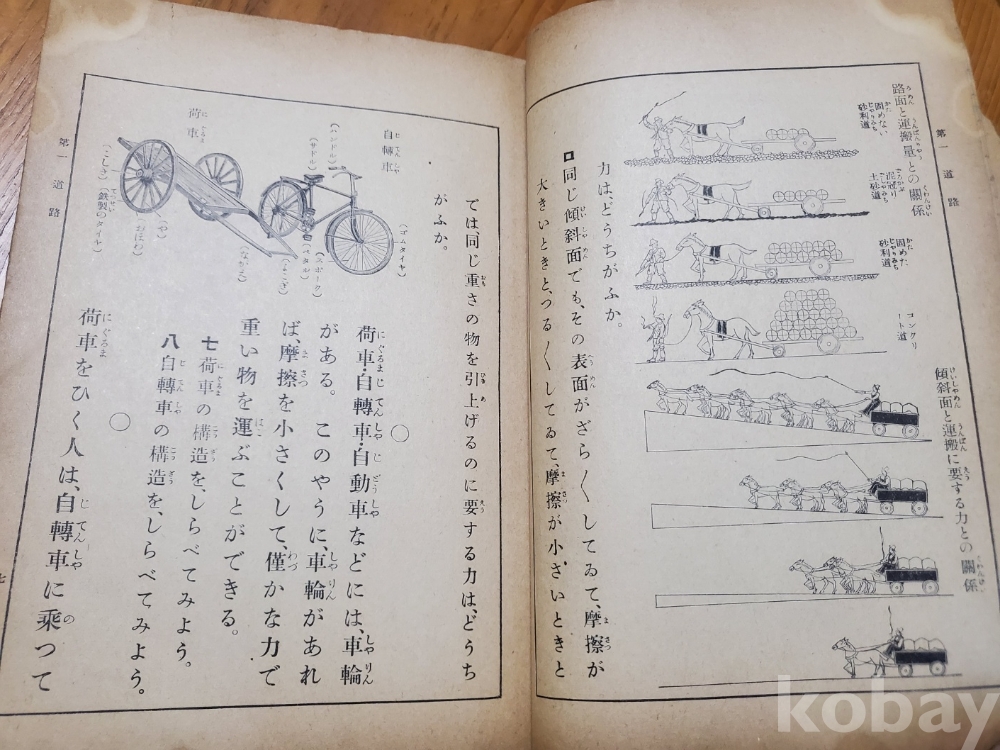 第一 道路
路面と運搬量との關係
固めない砂利道
泥冠り土砂道
固めた砂利道
コンクリート道
傾斜面と運搬に要する力との關係
力は、どうちがふか。
ロ 同じ傾斜面でも、その表面がざら〱してゐて、摩擦が
大きいときと、つる〱してゐて、摩擦が小さいときと
第一 道路
では、同じ重さの物を引上げるのに要する力は、どうち
がふか。
自轉車
(ハンドル)
(サドル)
(ゴムタイヤ)
(スポーク)
(ペダル)
荷車
(こしき)
(鐵製のタイヤ)
(や)
(おほわ)
(ながえ)
○
荷車・自轉車・自動車などには、車輪
がある。このやうに、車輪があれ
ば、摩擦を小さくして、僅かな力で
重い物を運ぶことができる。
七 荷車の構造を、しらべてみよう。
八 自轉車の構造を、しらべてみよう。
○
荷車をひく人は、自轉車に乘つて
七
kobay